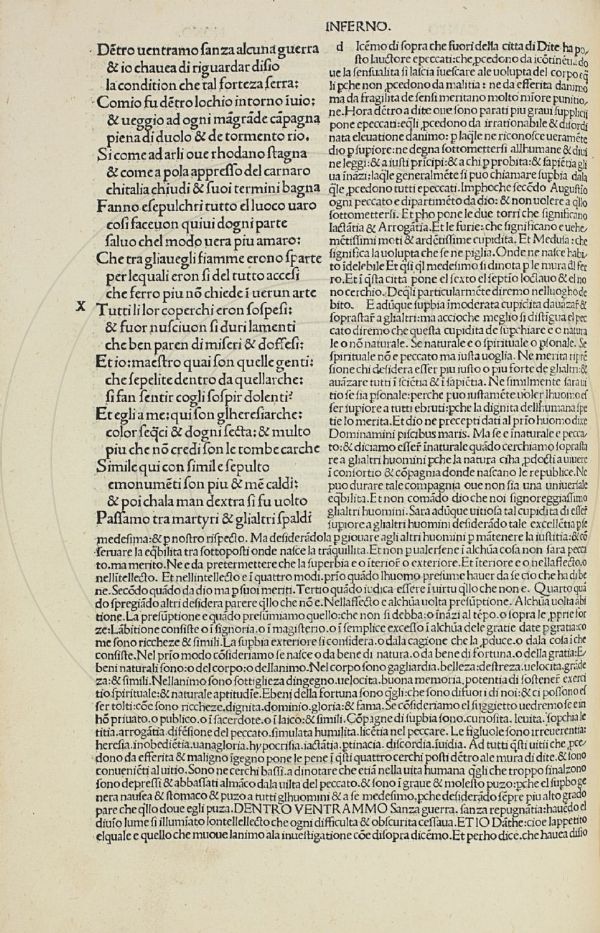 INFERNO.
Dētro uentramo sanza alcuna guerra
& io chauea di riguardar disio
la condition che tal forteza serra:
Comio fu dētro lochio intorno inuio:
& ueggio ad ogni mā grāde cāpagna
piena di duolo & de tormento rio.
Si come ad arli oue rhodano stagna
& come a pola appresso del carnaro
chitalia chiudi & suoi termini bagna
Fanno esepulchri tutto elluoco uaro
cosi faceuon quiui dogni parte
saluo chel modo uera piu amaro:
Che tra gliauegli fiamme erono sparte
per lequali eron si del tutto accesi
che ferro piu nō chiede i uerun arte
X
Tutti li lor coperchi eron sospesi:
& fuor nusciuon si duri lamenti
che ben paren di miseri & doffesi:
Et io: maestro quai son quelle genti:
che sepelite dentro da quellarche:
si fan sentir cogli sospir dolenti?
Et egli a me: qui son glheresiarche:
color seq̄ci & dogni secta: & multo
piu che nō credi son le tombe carche
Simile qui con simile sepulto
emonumēti son piu & mē caldi:
& poi chala man dextra si fu uolto
Passamo tra martyri & glialtri spaldi
d Icēmo di sopra che fuori della citta di Dite ha po,
sto lauctore epeccati: che, pcedono da icōtinētia. do
ue la sensualita si lascia iuescare ale uolupta del corpo
li pche non ,pcedono da malitia: ne da efferita danimo
ma da fragilita de sensi meritano molto misore punitio,
ne. Hora dētro a dite oue sono parati piu graui supplicii
pone epeccati: eq̄li ,pcedono da irrationabile & disordi
nata eleuatione danimo: p laq̄le ne riconosce ueramēte
dio p supiore: ne degna sottometterSi allhumane & diui
ne leggi: & a iusti prīcipi: & a chi p probita: & sapiētia gli
ua īnazi: laq̄le generalmēte si puo chiamare supbia dala
q̄le ,pcedono tutti epeccati. Imphoche secēdo Augustio
ogni peccato e dipartimēto da dio: & non uolere a q̄llo
sottomettersi. Et pho pone le due torri che significano
Iactātia & Arrogātia. Et le furie: che significano e uehe,
mētissimi moti & ardētissime cupidita. Et Medusa: che
significa la uolupta che se ne piglia. Onde ne nasce habi,
to idelebile Et q̄sti q̄l medesimo si dinota p le mura di fer
ro. Et ī q̄sta citta pone el sexto el septio loctauo & el no
no cerchio. Deq̄li particularmēte diremo nelluogho de
bito.  E adūque supbia imoderata cupidita dauāzar &
soprastar a glialtri: ma accioche meglio si distigua el pec
cato diremo che questa cupidita de supchiare e o natura
le o nō naturale. Se naturale e o spirituale o psonale. Se
spirituale nō e peccato ma iusta uoglia. Ne merita riprē
sione chi desidera esser piu iusto o piu forte de glialtri: &
auāzare tutti ī scientia & ī sapiētia. Ne similmente sara ui
tio se sia psonale: perche puo iustamēte uoler lhuomo es
ser supiore a tutti ebruti: pche la dignita dellhumana spe
tie lo merita. Et dio ne precepti dati al prio huomo dixe
Dominamini piscibus maris. Ma se e inaturale e pecca,
to: & diciamo esser īnaturale quādo cerchiamo soprasta
re a glialtri huomini pche la natura ciha ,pdocti a uiuere
ī consortio & cōpagnia donde nascano le republice. Ne
puo durare tale compagnia oue non sia una uniuersale
eq̄bilita. Et non comādo dio che noi signoreggiassimo
glialtri huomini. Sara adūque uitiosa tal cupidita di esser
supiore a glialtri huomini desiderādo tale excellētia pse
medesima: & p nostro rispecto. Ma desiderādola p giouare agli altri huomini p mātenere la iustitia: & cō
seruare la eq̄bilita tra sottoposti onde nasce la trāquillita. Et non p ualersene ī alchūa cosa non sara pecca
to. ma merito. Ne e da pretermettere che la superbia e o īterior o exteriore. Et īteriore e o nellaffecto. o
nellītellecto. Et nellintellecto e ī quattro modi. prio quādo lhuomo presume hauer da se cio che ha di be
ne. Secōdo quādo da dio ma p suoi meriti. Tertio quādo iudica essere ī uirtu q̄llo che non e. Quarto quā
do spregiādo altri desidera parere q̄llo che nō e. Nellaffecto e alchūa uolta presūptione. Alchūa uolta abi
tione. La presūptione e quādo presumiamo quello: che non si debba: o īnāzi al tēpo. o sopra le ,pprie for
ze: Lābitione consiste o ī signoria. o ī magisterio. o ī semplice excesso ī alchūa dele gratie date p gratia: co
me sono ricchezze & simili. La supbia exteriore si considera. o dala cagione che la ,pduce. o dala cosa ī che
consiste. Nel prio modo cōsideriamo se nasce o da bene di natura. o da bene di fortuna. o della gratia: E
beni naturali sono: o del corpo: o dellanimo. Nel corpo sono gagliardia. belleza: destreza. uelocita. grāde
za: & simili. Nellanimo sono sottiglieza dingegno. uelocita. buona memoria. potentia di sostener exerci
tio spirituale: & naturale aptitudīe. Ebeni della fortuna sono q̄gli: che sono difuori di noi: & ci possono es
ser tolti: cōe sono ricchezze. dignita. dominio. gloria: & fama. Se cōsideriamo el suggietto uedremo se e in
hō priuato. o publico. o ī sacerdote. o ī laico: & simili. Cōpagne di supbia sono. curiosita. leuita. sopchia le
titia. arrogātia. difēsione del peccato. simulata humilita. licētia nel peccare. Le figluole sono irreuerentia:
heresia. inobediētia. uanagloria. hypocrisia. iactātia. ptinacia. discordia. suidia. Ad tutti q̄sti uitii che ,pce
dono da efferita & maligno īgegno pone le pene ī q̄sti quattro cerchi posti dētro ale mura di dite: & sono
conueniēti al uitio. Sono ne cerchi bassi. a dinotare che etiā nella uita humana q̄gli che troppo sinalzono
sono depressi & abbassati almāco dala uilta del peccato. & sono ī graue & molesto puzo: pche el supbo ge
nera nausea & stomaco & puzo a tutti glhuomini & a se medesimo. pche desiderādo sēpre piu alto grado
pare che q̄llo doue egli puza. DENTRO VENTRAMMO Sanza guerra. sanza repugnātia: hauēdo el
diuīo lume si illumiato lontellecto che ogni difficulta & obscurita cessaua. ET IO Dāthe: cioe lappetito
elquale e quello che muoue lanimo ala inuestigatione cōe disopra dicēmo. Et perho dice. che hauea disio